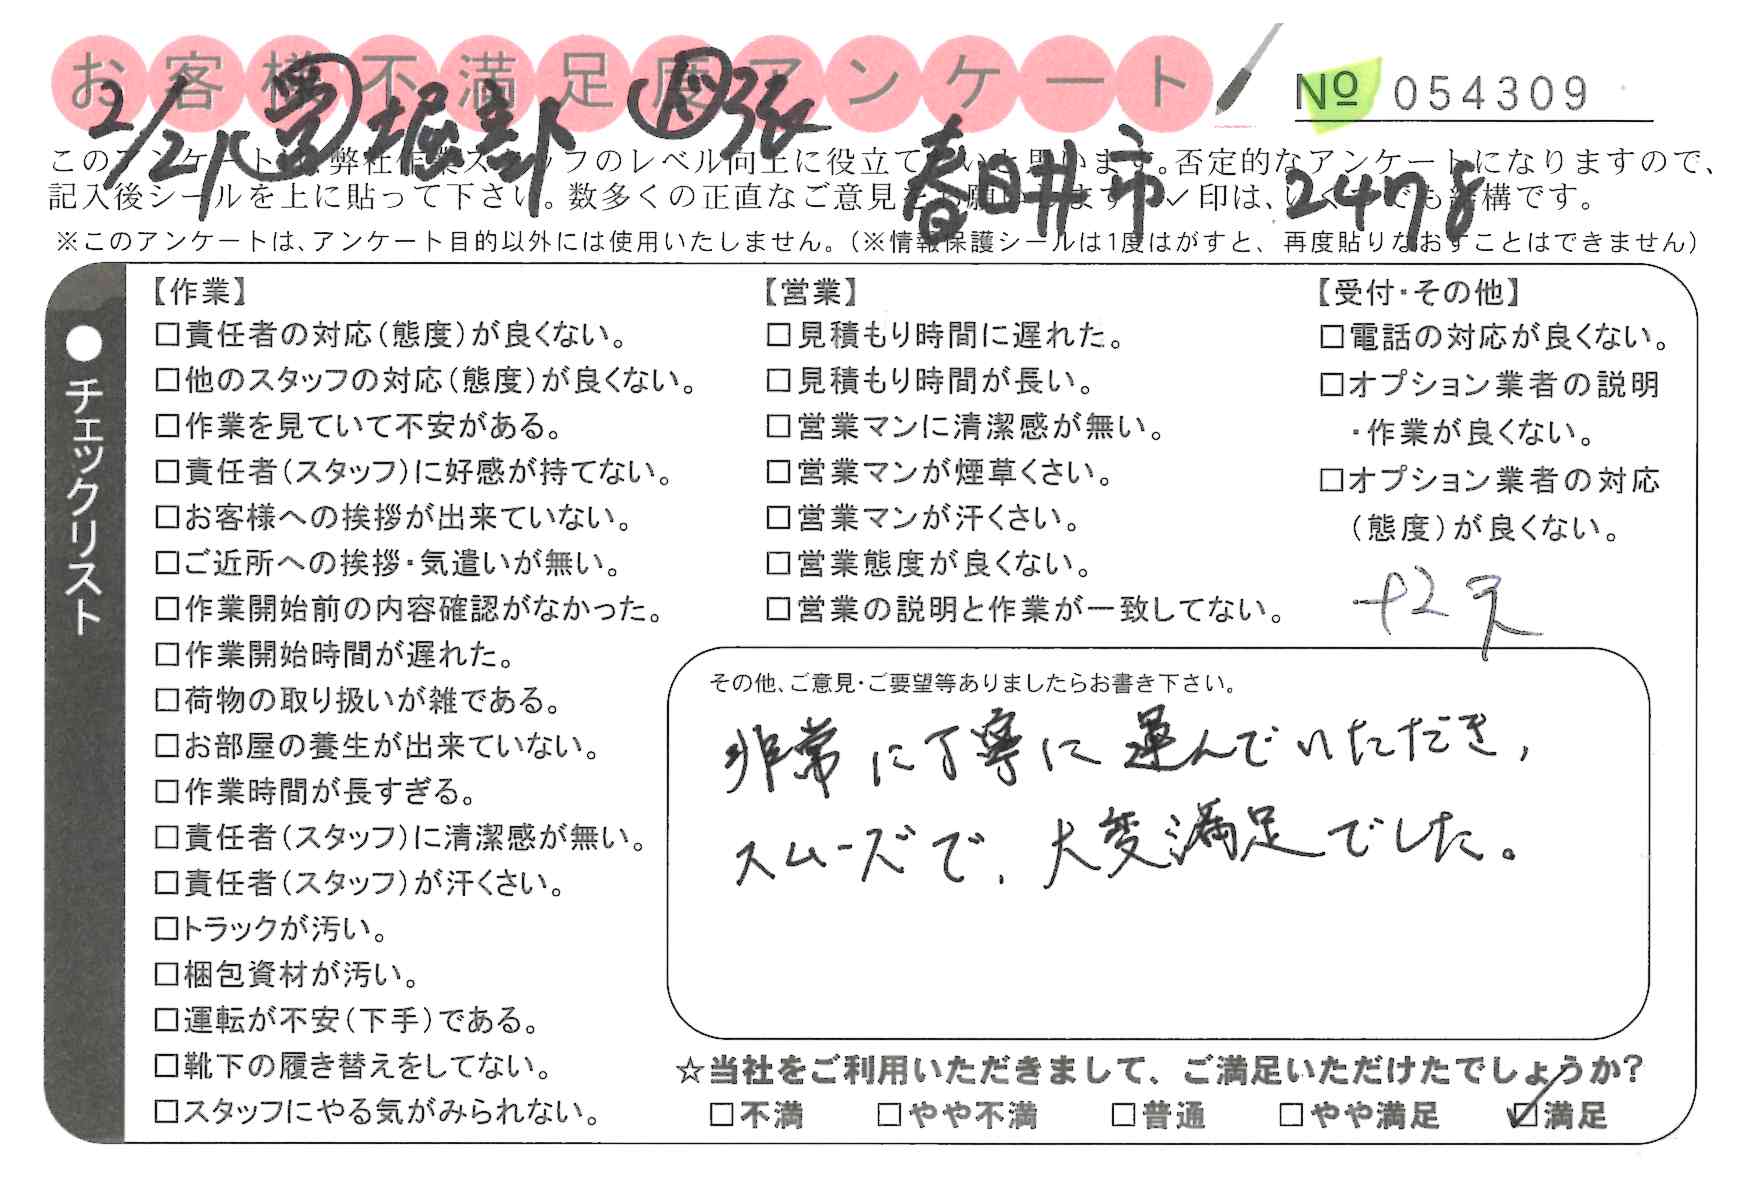 お客様不満足度アンケート
№ 054309
2/21 堀 張
春日井市 2478
このアンケートは、弊社作業スタッフのレベル向上に役立てたいと思います。否定的なアンケートになりますので、
記入後シールを上に貼って下さい。数多くの正直なご意見をお願いします。✓印は、いくつでも結構です。
※このアンケートは、アンケート目的以外には使用いたしません。(※情報保護シールは1度はがすと、再度貼りなおすことはできません)
●チェックリスト
【作業】
□責任者の対応(態度)が良くない。
□他のスタッフの対応(態度)が良くない。
□作業を見ていて不安がある。
□責任者(スタッフ)に好感が持てない。
□お客様への挨拶が出来ていない。
□ご近所への挨拶・気遣いが無い。
□作業開始前の内容確認がなかった。
□作業開始時間が遅れた。
□荷物の取り扱いが雑である。
□お部屋の養生が出来ていない。
□作業時間が長すぎる。
□責任者(スタッフ)に清潔感が無い。
□責任者(スタッフ)が汗くさい。
□トラックが汚い。
□梱包資材が汚い。
□運転が不安(下手)である。
□靴下の履き替えをしてない。
□スタッフにやる気がみられない。
【営業】
□見積もり時間に遅れた。
□見積もり時間が長い。
□営業マンに清潔感が無い。
□営業マンが煙草くさい。
□営業マンが汗くさい。
□営業態度が良くない。
□営業の説明と作業が一致してない。
【受付・その他】
□電話の対応が良くない。
□オプション業者の説明
・作業が良くない。
□オプション業者の対応
(態度)が良くない。
+2
その他、ご意見・ご要望等ありましたらお書き下さい。
非常に丁寧に運んでいただき、
スムーズで、大変満足でした。
☆当社をご利用いただきまして、ご満足いただけたでしょうか?
□不満 □やや不満 □普通 □やや満足 ☑満足